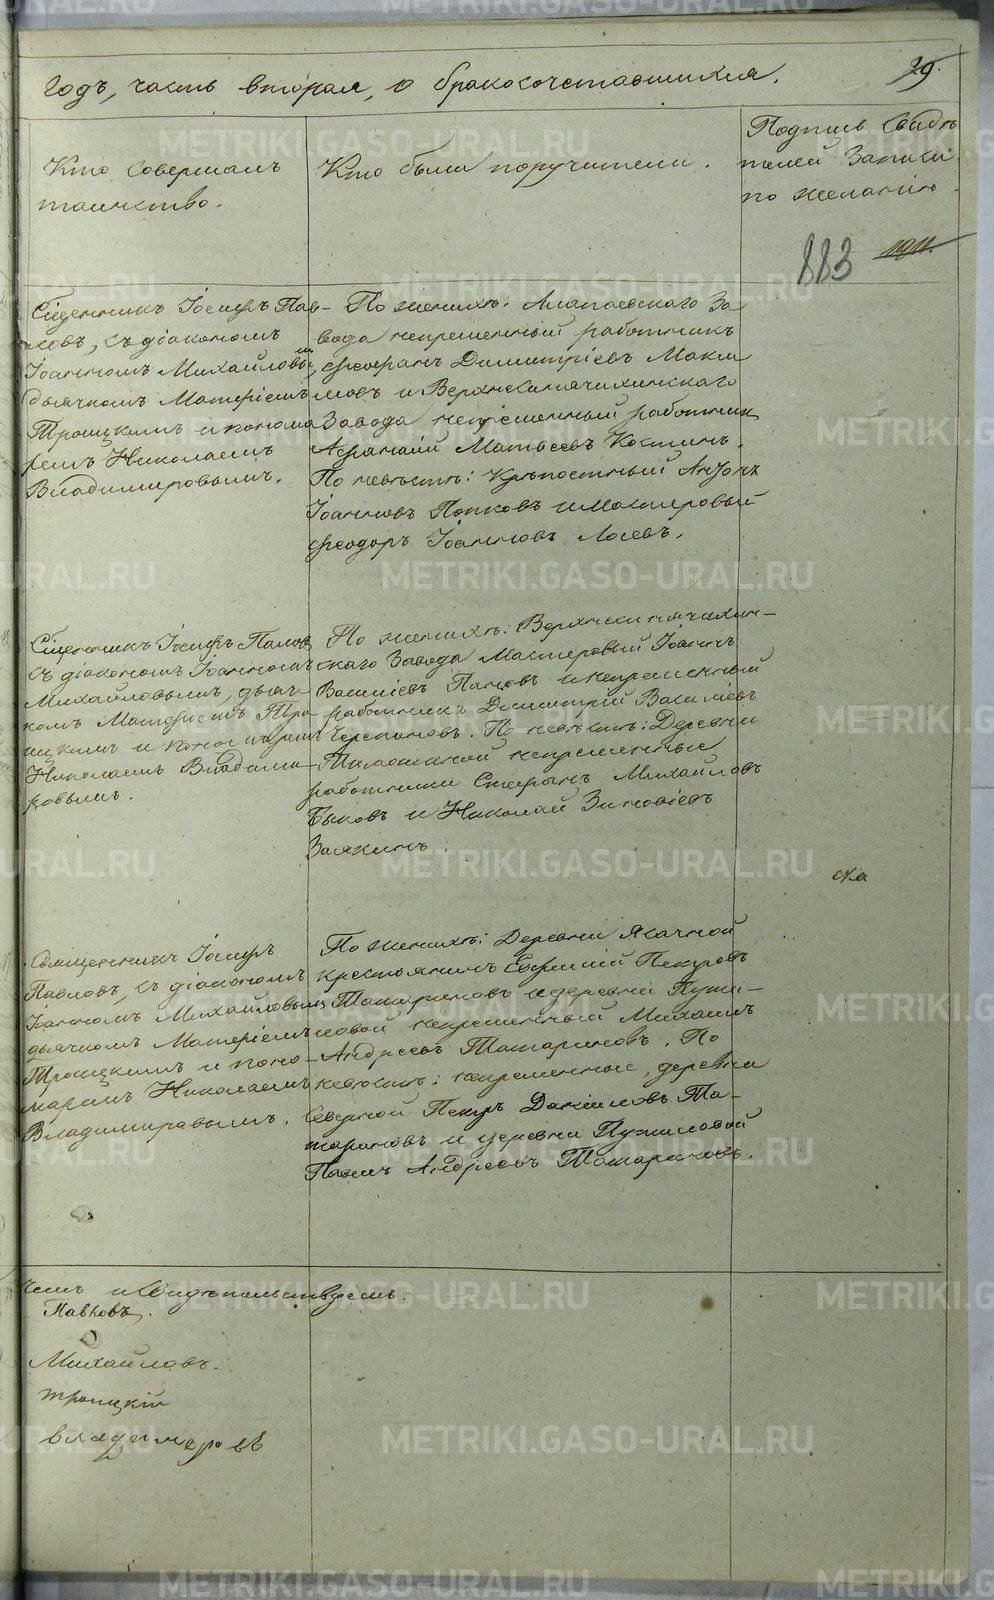 годъ, часть вторая, о бракосочетавшихся.
29.
Кто совершалъ
таинство.
Кто были поручители.
Подпись свидѣ
телей записи
по желанію.
883
Священникъ Іосифъ Пав-
ловъ, съ діакономъ
Іоанномъ Михайловымъ,
дьячкомъ Матѳіемъ
Троицкимъ и понома
ремъ Николаемъ
Владимировымъ.
По женихѣ: Алапаевскаго За-
вода непремѣнный работникъ
Феофанъ Димитріевъ Макси
мовъ и Верхнесинячихинскаго
Завода непремѣнный работникъ
Афанасій Матвѣевъ Костинъ.
По невѣстѣ: Крѣпостный Антонъ
Іоанновъ Попковъ и Мастеровый
Феодоръ Іоанновъ Лосевъ.
Священникъ Іосифъ Павловъ
съ діакономъ Іоанномъ
Михайловымъ, дьяч-
комъ Матѳіемъ Тро-
ицкимъ и пономаремъ
Николаемъ Владими-
ровымъ.
По женихѣ: Верхнесинячихин-
скаго Завода Мастеровый Іоаннъ
Василіевъ Пановъ и непремѣнный
работникъ Димитрій Васильевъ
Черепановъ. По невѣстѣ: Деревни
Тимошиной непремѣнные
работники Стефанъ Михайловъ
Быковъ и Николай Зиновіевъ
Заякинъ.
Священникъ Іосифъ
Павловъ, съ діакономъ
Іоанномъ Михайловымъ
дьячкомъ Матѳіемъ
Троицкимъ и поно-
маремъ Николаемъ
Владимировымъ.
По женихѣ: Деревни Ясачной
крестьянинъ Евфимій Петровъ
Татариновъ и деревни Пути-
ловой непремѣнный Михаилъ
Андреевъ Татариновъ. По
невѣстѣ: непремѣнные, деревни
Сѣверной Петръ Даниловъ Та-
тариновъ и деревни Путиловой
Павелъ Андреевъ Татариновъ.
чемъ и свидѣтельствуемъ.
Павловъ.
Михайловъ.
Троицкій
Владимировъ
METRIKI.GASO-URAL.RU